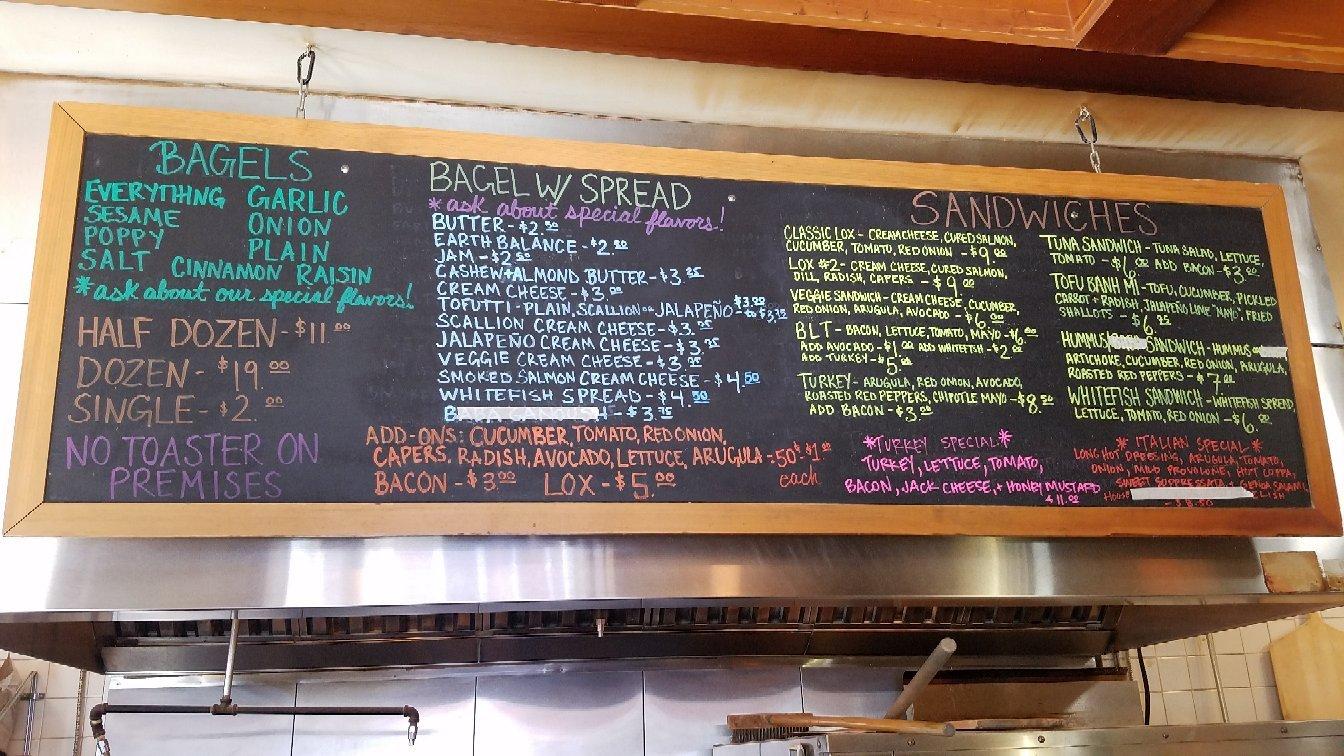 BAGELS
EVERYTHNG GARLIC
SESAME ONION
POPPY PLAIN
SALT CINNAMON RAISIN
*ask about our special flavors!
HALF DOZEN - $11.00
DOZEN - $19.00
SINGLE - $2.00
NO TOASTER ON
PREMISES
BAGEL W/ SPREAD
*ask about special flavors!
BUTTER - $2.50
EARTH BALANCE - $2.50
JAM - $2.50
CASHEW + ALMOND BUTTER - $3.25
CREAM CHEESE - $3.00
TOFUTTI - PLAIN, SCALLION OR JALAPEÑO - $3.00 to $3.75
SCALLION CREAM CHEESE - $3.75
JALAPEÑO CREAM CHEESE - $3.75
VEGGIE CREAM CHEESE - $3.75
SMOKED SALMON CREAM CHEESE - $4.50
WHITEFISH SPREAD - $4.50
- $3.75
ADD-ONS: CUCUMBER, TOMATO, RED ONION,
CAPERS, RADISH, AVOCADO, LETTUCE, ARUGULA - 50¢ $1.00
each
BACON - $3.00 LOX - $5.00
SANDWICHES
CLASSIC LOX - CREAM CHEESE, CURED SALMON,
CUCUMBER, TOMATO, RED ONION - $9.00
LOX #2 - CREAM CHEESE, CURED SALMON,
DILL, RADISH, CAPERS - $9.00
VEGGIE SANDWICH - CREAM CHEESE, CUCUMBER,
RED ONION, ARUGULA, AVOCADO - $6.
BLT - BACON, LETTUCE, TOMATO, MAYO - $6.
ADD AVOCADO - $1.00 ADD WHITEFISH - $2.00
ADD TURKEY - $5.00
TURKEY - ARUGULA, RED ONION, AVOCADO,
ROASTED RED PEPPERS, CHIPOTLE MAYO - $8.50
ADD BACON - $3.00
*TURKEY SPECIAL*
TURKEY, LETTUCE, TOMATO,
BACON, JACK CHEESE, + HONEY MUSTARD
$11.00
TUNA SANDWICH - TUNA SALAD, LETTUCE,
TOMATO - $6. ADD BACON - $3.00
TOFU BANH MI - TOFU, CUCUMBER, PICKLED
CARROT + RADISH, JALAPEÑO LIME "MAYO", FRIED
SHALLOTS - $6.75
HUMMUS SANDWICH - HUMMUS
ARTICHOKE, CUCUMBER, RED ONION, ARUGULA,
ROASTED RED PEPPERS - $7.00
WHITEFISH SANDWICH - WHITEFISH SPREAD,
LETTUCE, TOMATO, RED ONION - $6.
* ITALIAN SPECIAL *
LONG HOT DRESSING, ARUGULA, TOMATO,
ONION, MILD PROVOLONE, HOT COPPA,
SWEET SUPPRESSATA, + GENOA SALAMI
HOUSE
- $8.50